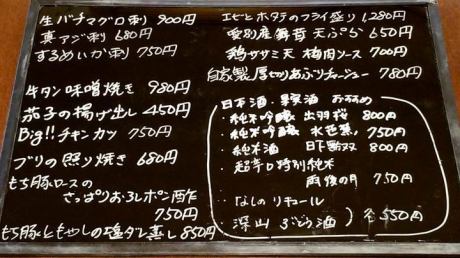 生バチマグロ刺 900円
真アジ刺 680円
するめいか刺 750円
牛タン味噌焼き 980円
茄子の揚げ出し 450円
Big!! チキンカツ 750円
ブリの照り焼き 680円
もち豚ロースの
さっぱりおろしポン酢
750円
もち豚ともやしの塩ダレ蒸し 850円
エビとホタテのフライ盛り 1,280円
愛別産舞茸 天ぷら 650円
鶏ササミ天 梅肉ソース 700円
自家製厚切りあぶりチャーシュー 780円
日本酒・果実酒 おすすめ
・純米吟醸 出羽桜 800円
・純米吟醸 水芭蕉 750円
・純米酒 日下無双 800円
・超辛口特別純米
雨後の月 750円
・なしのリキュール
・深山ぶどう酒 ) 各550円